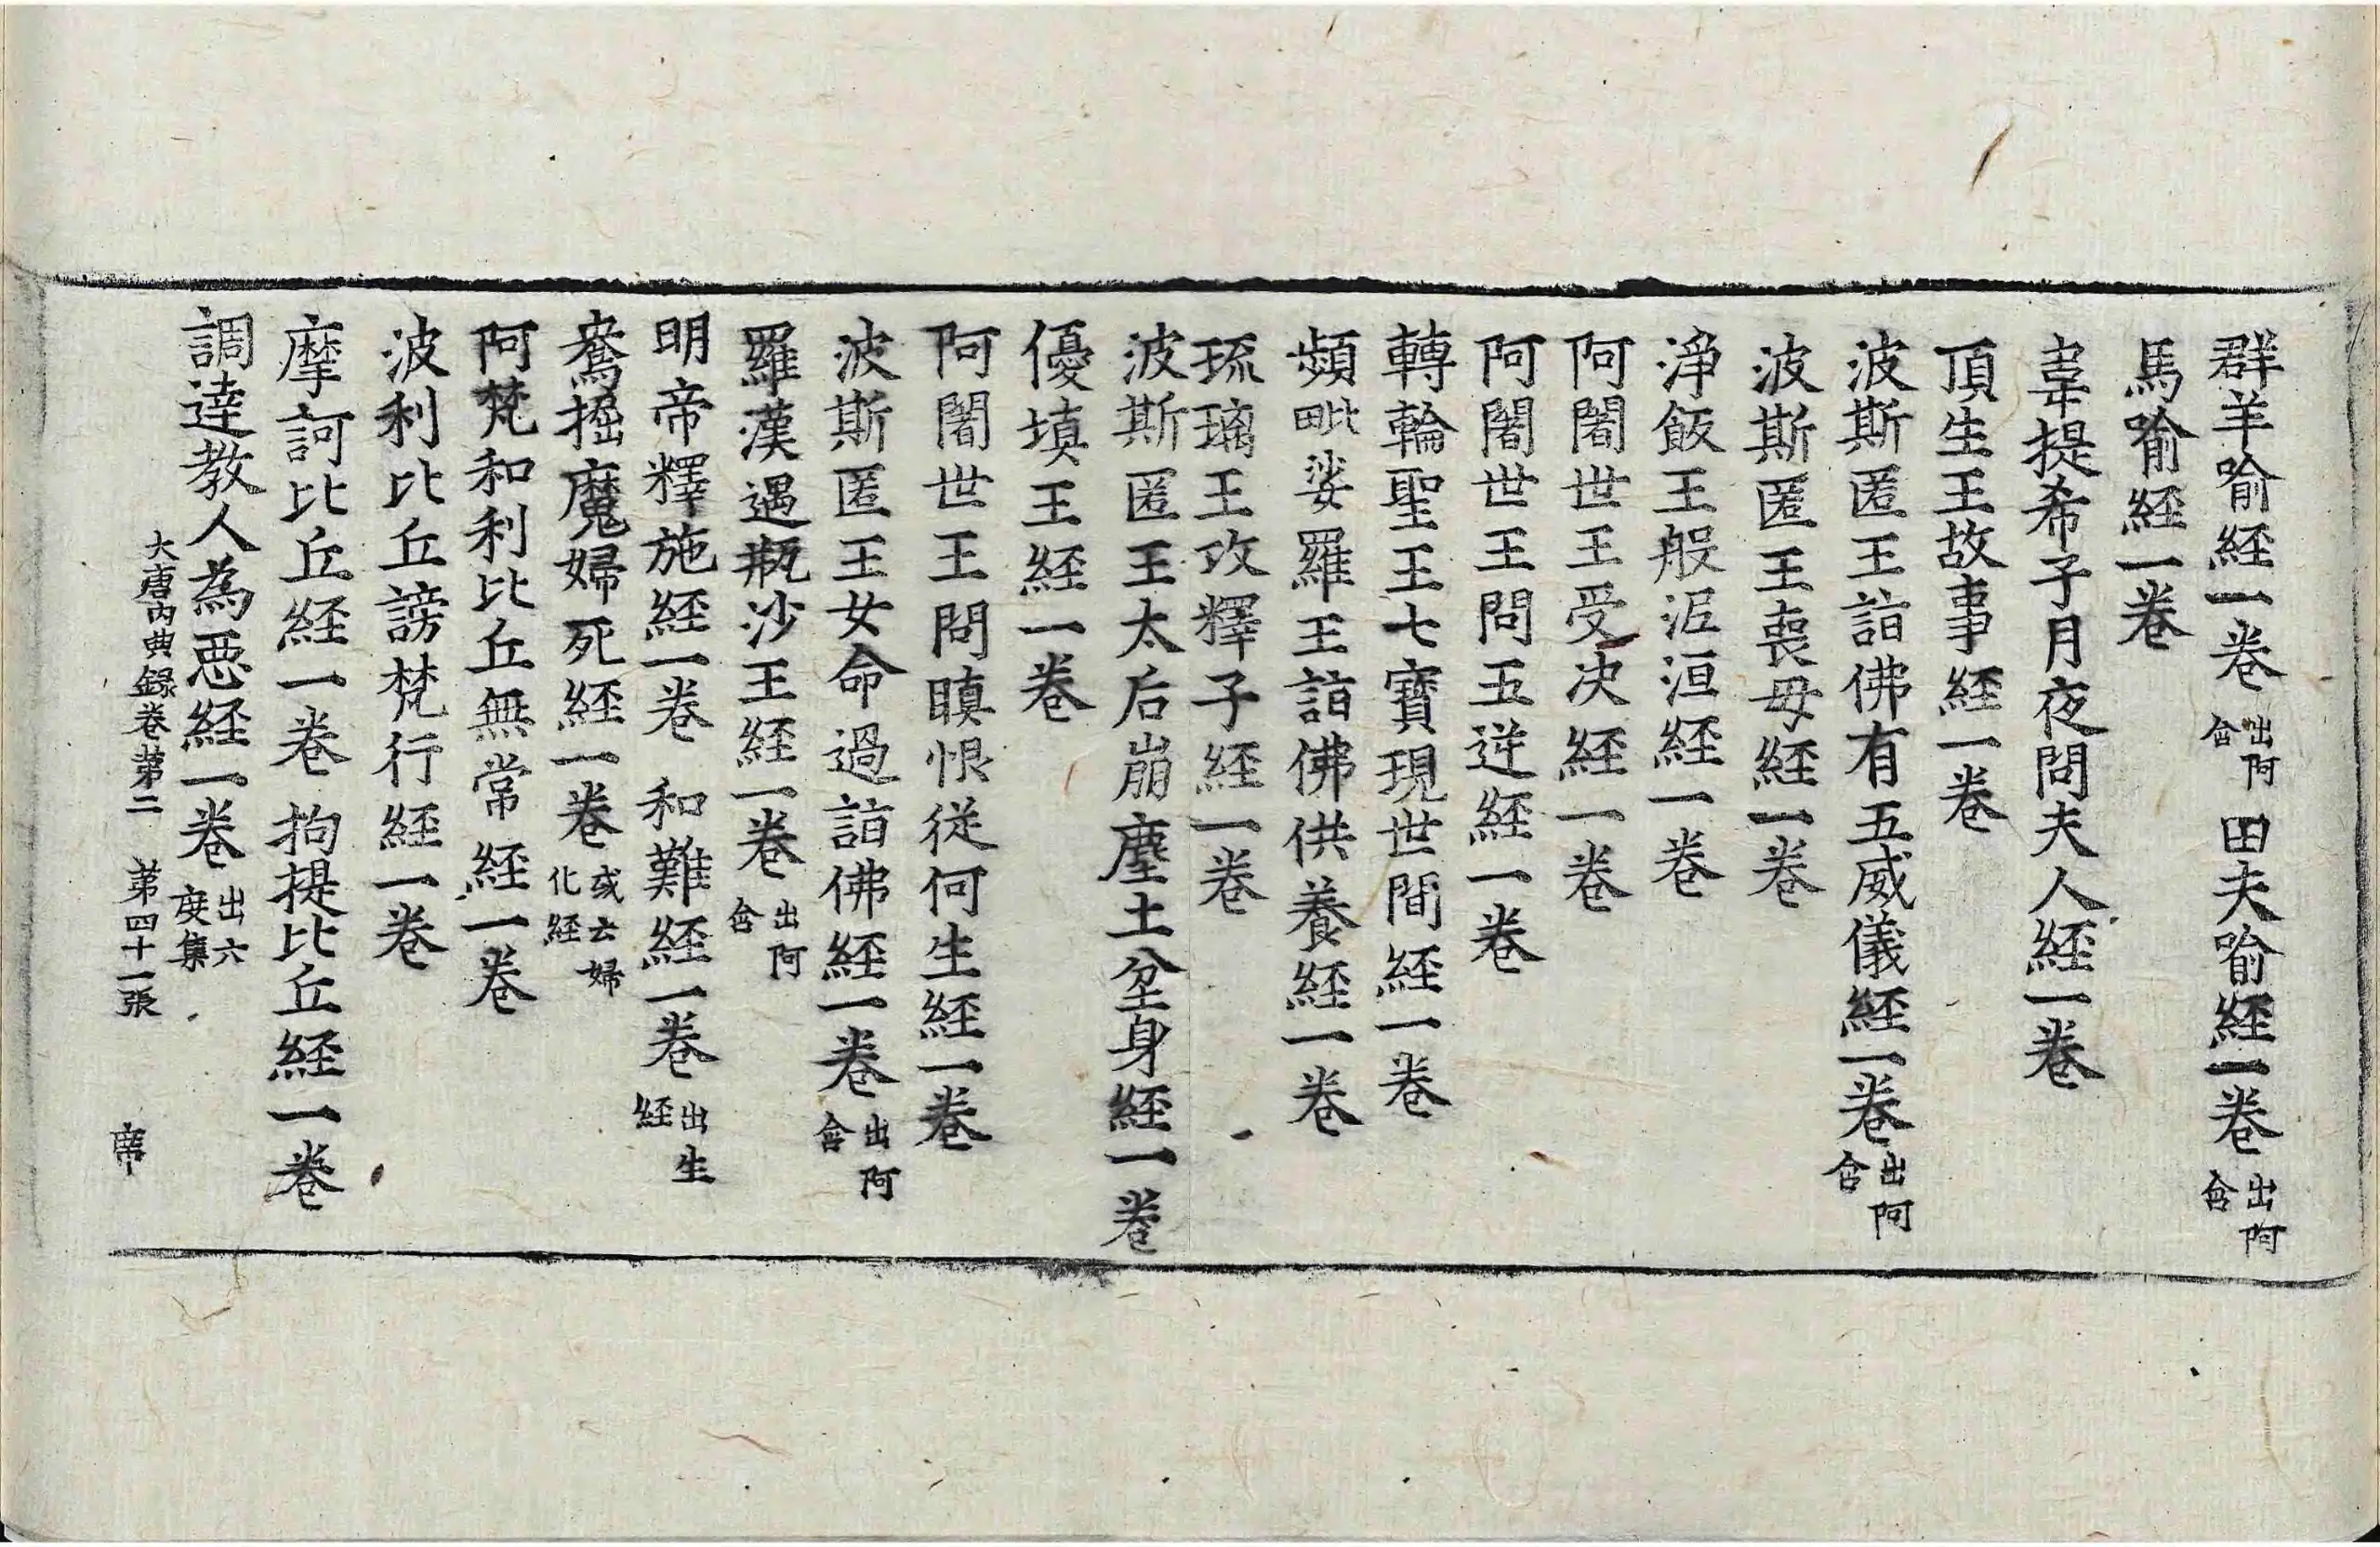 群羊喻経一卷出阿含田夫喻経一卷出阿含
馬喻経一卷
韋提希子月夜問夫人経一卷
頂生王故事経一卷
波斯匿王詣佛有五威儀経一卷出阿含
波斯匿王喪母経一卷
淨飯王般泥洹経一卷
阿闍世王受决経一卷
阿闍世王問五逆経一卷
轉輪聖王七寶現世間経一卷
頻毗娑羅王詣佛供養経一卷
琉璃王攻釋子経一卷
波斯匿王太后崩塵土坌身経一卷
優填王経一卷
阿闍世王問瞋恨從何生経一卷
波斯匿王女命過詣佛経一卷出阿含
羅漢遇瓶沙王経一卷出阿含
明帝釋施経一卷　和難経一卷出生経
鴦掘魔婦死経一卷或云婦化経
阿梵和利比丘無常経一卷
波利比丘謗梵行経一卷
摩訶比丘経一卷　拘提比丘経一卷
調達教人為惡経一卷出六度集
大唐内典録卷第二　第四十一張　席